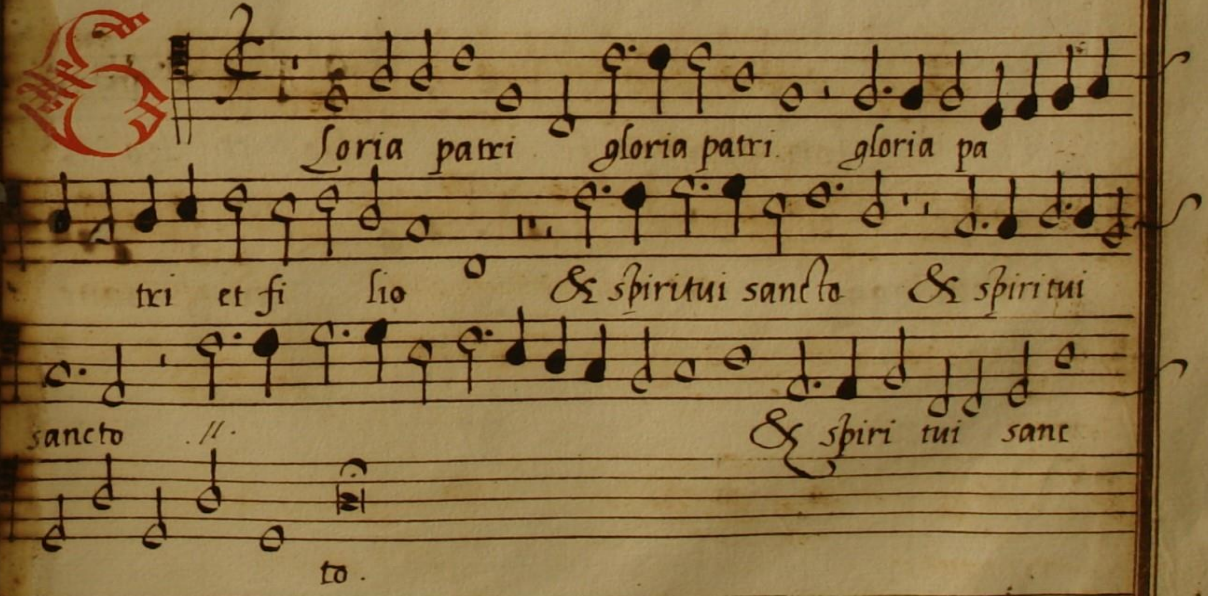 Gloria patri gloria patri. gloria pa
tri et fi lio & spiritui sancto & spiritui
sancto .//. & spiri tui sanc
to.